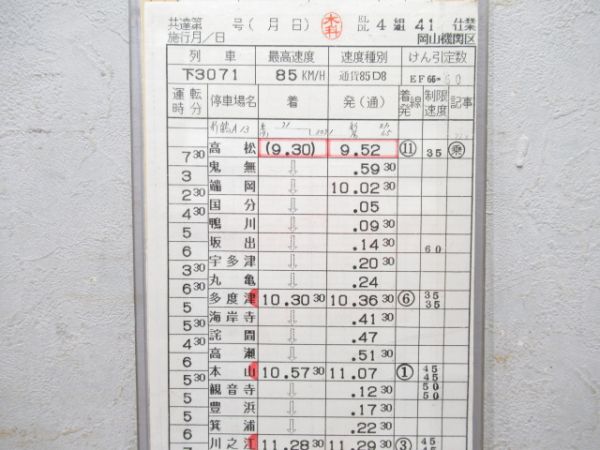 共達第 号( 月 日) 木科 EL DL 4 組 41 仕業
施行月/日 岡山機関区
列 車 最高速度 速度種別 けん引定数
下3071 85 KM/H 通貨85D8 EF66-
運転時分 停車場名 着 発(通) 着発線 制限速度 記事
高松 (9.30) 9.52 ⑪ 35 乗
7 30
鬼無 ⇩ .59 30
3
端岡 ⇩ 10.02 30
2 30
国分 ⇩ .05
4 30
鴨川 ⇩ .09 30
5
坂出 ⇩ .14 30 60
6
宇多津 ⇩ .20 30
3 30
丸亀 ⇩ .24
6 30
多度津 10.30 30 10.36 30 ⑥ 35 35
5
海岸寺 ⇩ .41 30
5 30
詫間 ⇩ .47
4 30
高瀬 ⇩ .51 30
6
本山 10.57 30 11.07 ① 45 45
5 30
観音寺 ⇩ .12 30 50 50
5
豊浜 ⇩ .17 30
5
箕浦 ⇩ .22 30
6
川之江 11.28 30 11.29 30 ③ 45